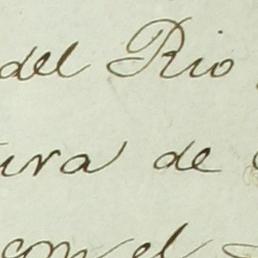 del Rio
ura de
con el